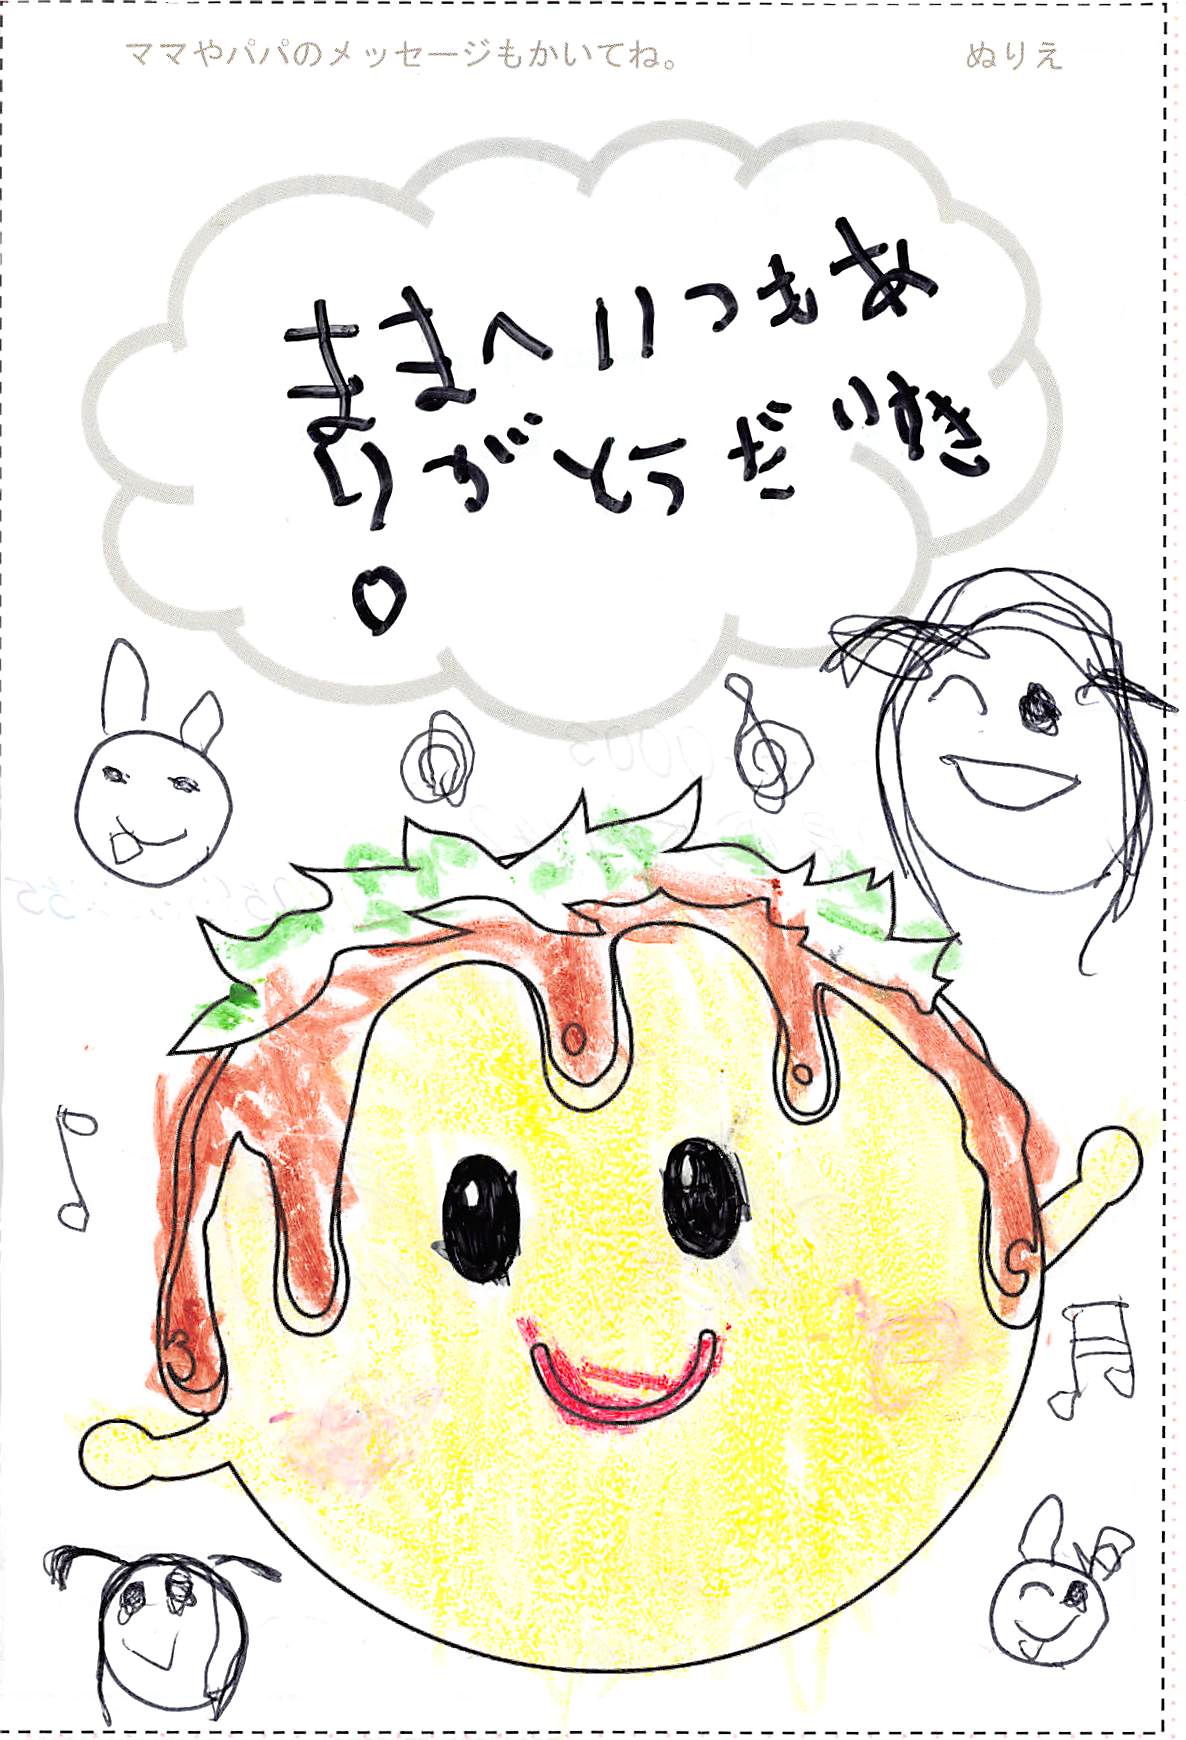 ママやパパのメッセージもかいてね。 ぬりえ
ままへいつもあ
りがとうだいすき
。